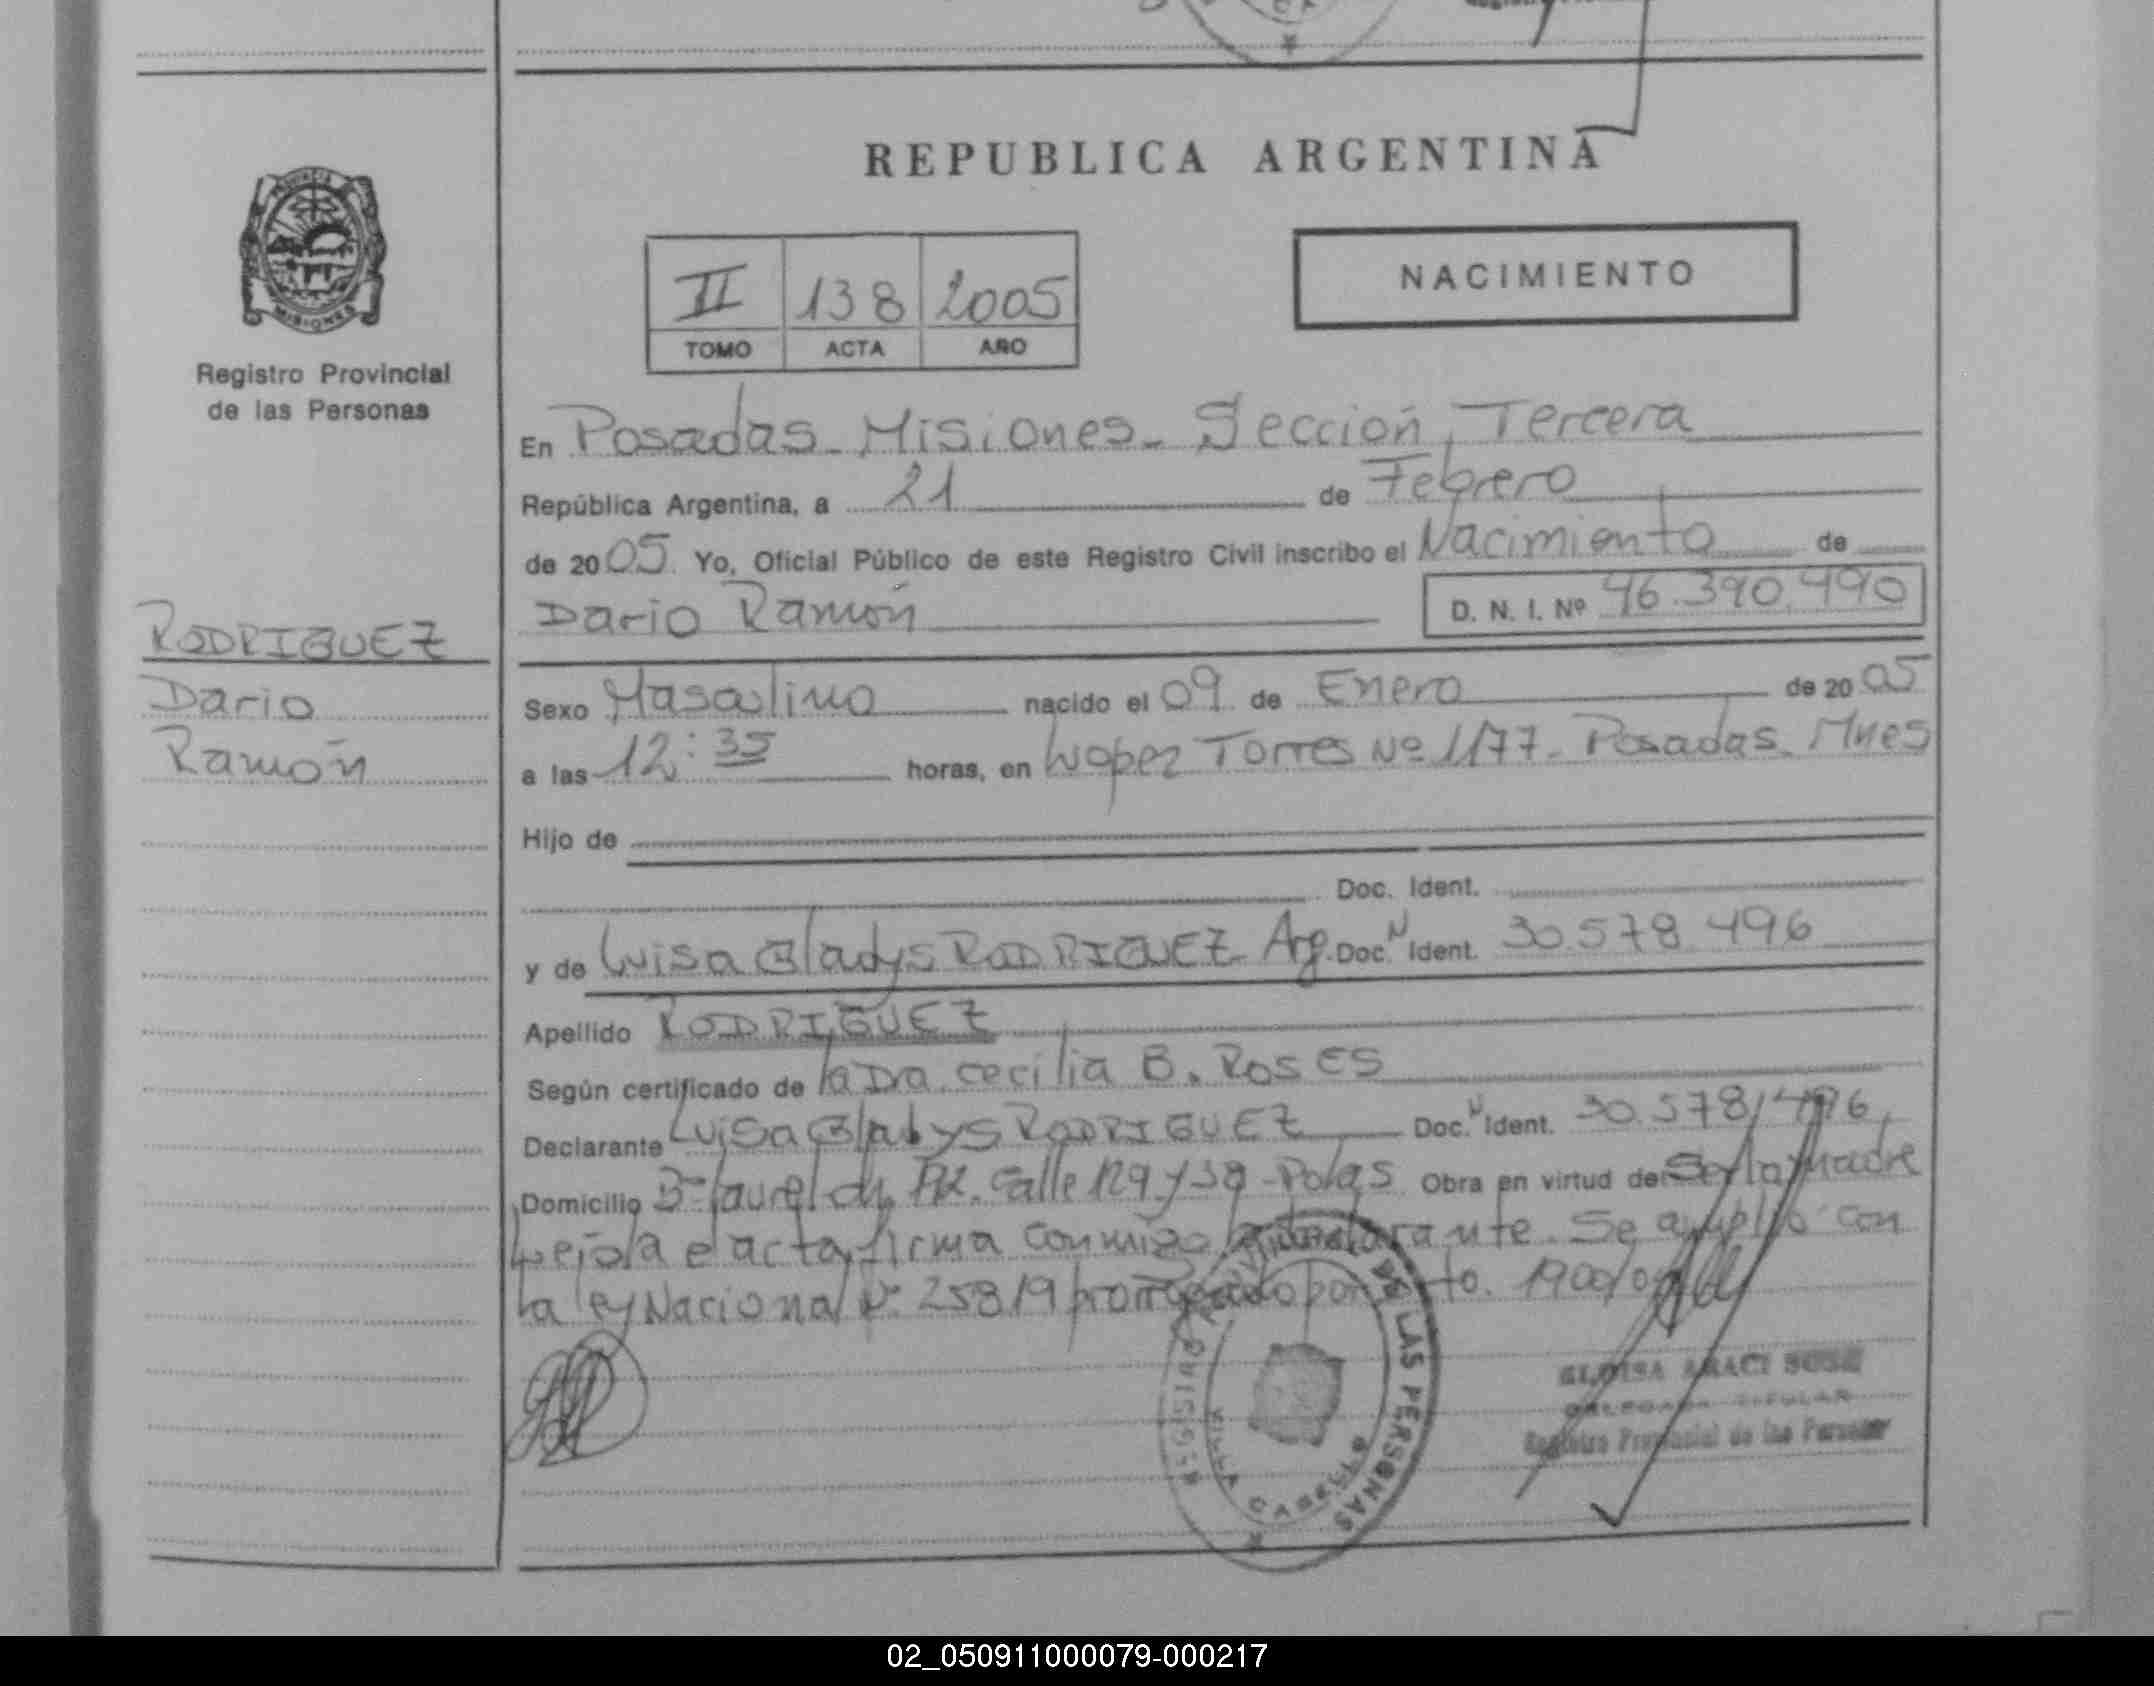 REPUBLICA ARGENTINA
NACIMIENTO
II 138 2005
TOMO ACTA AÑO
PROVINCIA DE MISIONES
Registro Provincial
de las Personas
RODRIGUEZ
Dario
Ramón
En Posadas - Misiones - Sección Tercera
República Argentina, a 21 de Febrero
de 2005 Yo, Oficial Público de este Registro Civil inscribo el Nacimiento de
Dario Ramón D. N. I. Nº 46.390.490
Sexo Masculino nacido el 09 de Enero de 2005
a las 12:35 horas, en Lopez Torres Nº 1177 - Posadas Mnes
Hijo de
Doc. Ident.
y de Luisa Gladys RODRIGUEZ Arg. Doc. N Ident. 30.578.496
Apellido RODRIGUEZ
Según certificado de la Dra. Cecilia B. Roses
Declarante Luisa Gladys RODRIGUEZ Doc. N Ident. 30.578.496
Domicilio Bº laurel calle 129 y 39 - Pdas Obra en virtud de Ser la madre
Leída el acta, firma conmigo la declarante. Se amplió con
la ley Nacional Nº 25819 por
ELOISA ARACI SOSA
DELEGADA TITULAR
Registro Provincial de las Personas
REGISTRO PROVINCIAL DE LAS PERSONAS
VILLA CABELLO
02_050911000079-000217